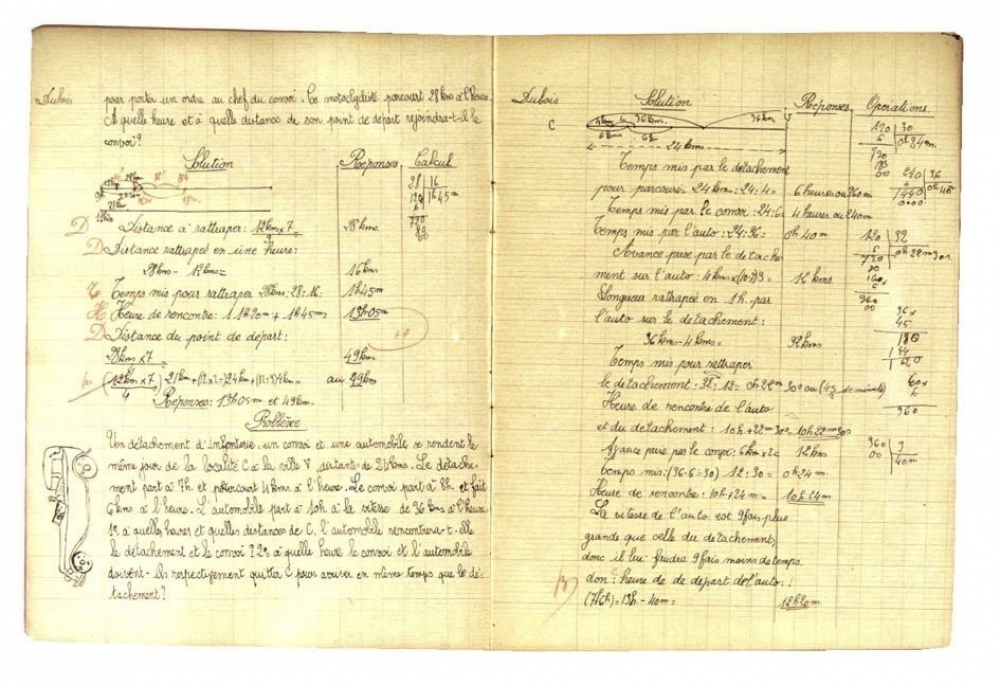 Dubois
pour porter un ordre au chef du convoi. Ce motocycliste parcourt 28 kms à l'heure
A quelle heure et à quelle distance de son point de départ rejoindra-t-il le
convoi?
Solution Réponses Calcul
28 16
120 1h45m
720
80
00
D Distance à rattraper: 12kms x 7 28 kms
D Distance rattrapée en une heure:
28kms - 12kms = 16 kms
T Temps mis pour rattraper 28kms: 28:16= 1h45m
H Heure de rencontre: 11h20m + 1h45m= 13h05m
D Distance du point de départ:
28kms x 7 49 kms
4
Réponses: 13h05m et 49km.
Problème
Un détachement d'infanterie, un convoi et une automobile se rendent le
même jour de la localité C à la ville V distante de 24kms. Le détache-
ment part à 7h et parcourt 4kms à l'heure. Le convoi part à 8h et fait
6kms à l'heure. L'automobile part à 10h à la vitesse de 36 kms à l'heure
1º à quelles heures et quelles distances de C. l'automobile rencontrera-t-elle
le détachement et le convoi? 2º à quelle heure le convoi et l'automobile
doivent-ils respectivement quitter C pour arriver en même temps que le dé-
tachement?
Dubois Solution Réponses Opérations
C 4km 36kms 36km V
24kms
Temps mis par le détachement
pour parcourir 24kms: 24:4= 6 heures ou
Temps mis par le convoi: 24:6= 4 heures ou 240m
Temps mis par l'auto: 24:36= 0h 40m
Avance prise par le détache
ment sur l'auto: 12 kms
Longueur rattrapée en 1h. par
l'auto sur le détachement:
36kms-4kms= 32kms
Temps mis pour rattraper
le détachement: 0h22m 30s
Heure de rencontre de l'auto
et du détachement: 10h+22m30s 10h22m30s
Avance prise par le convoi: 12kms
temps mis: 0h24m
Heure de rencontre: 10h+24m= 10h24m
La vitesse de l'auto est 9 fois plus
grande que celle du détachement,
donc il lui faudra 9 fois moins de temps.
don: heure de de départ de l'auto:
13h-40m= 12h20m
120 30
0h24m
720
240 36
1440 0h40
0000
120 32
720 0h22m30s
960
00
36x
45
180
144
60x
6
360
360 9
00 40m